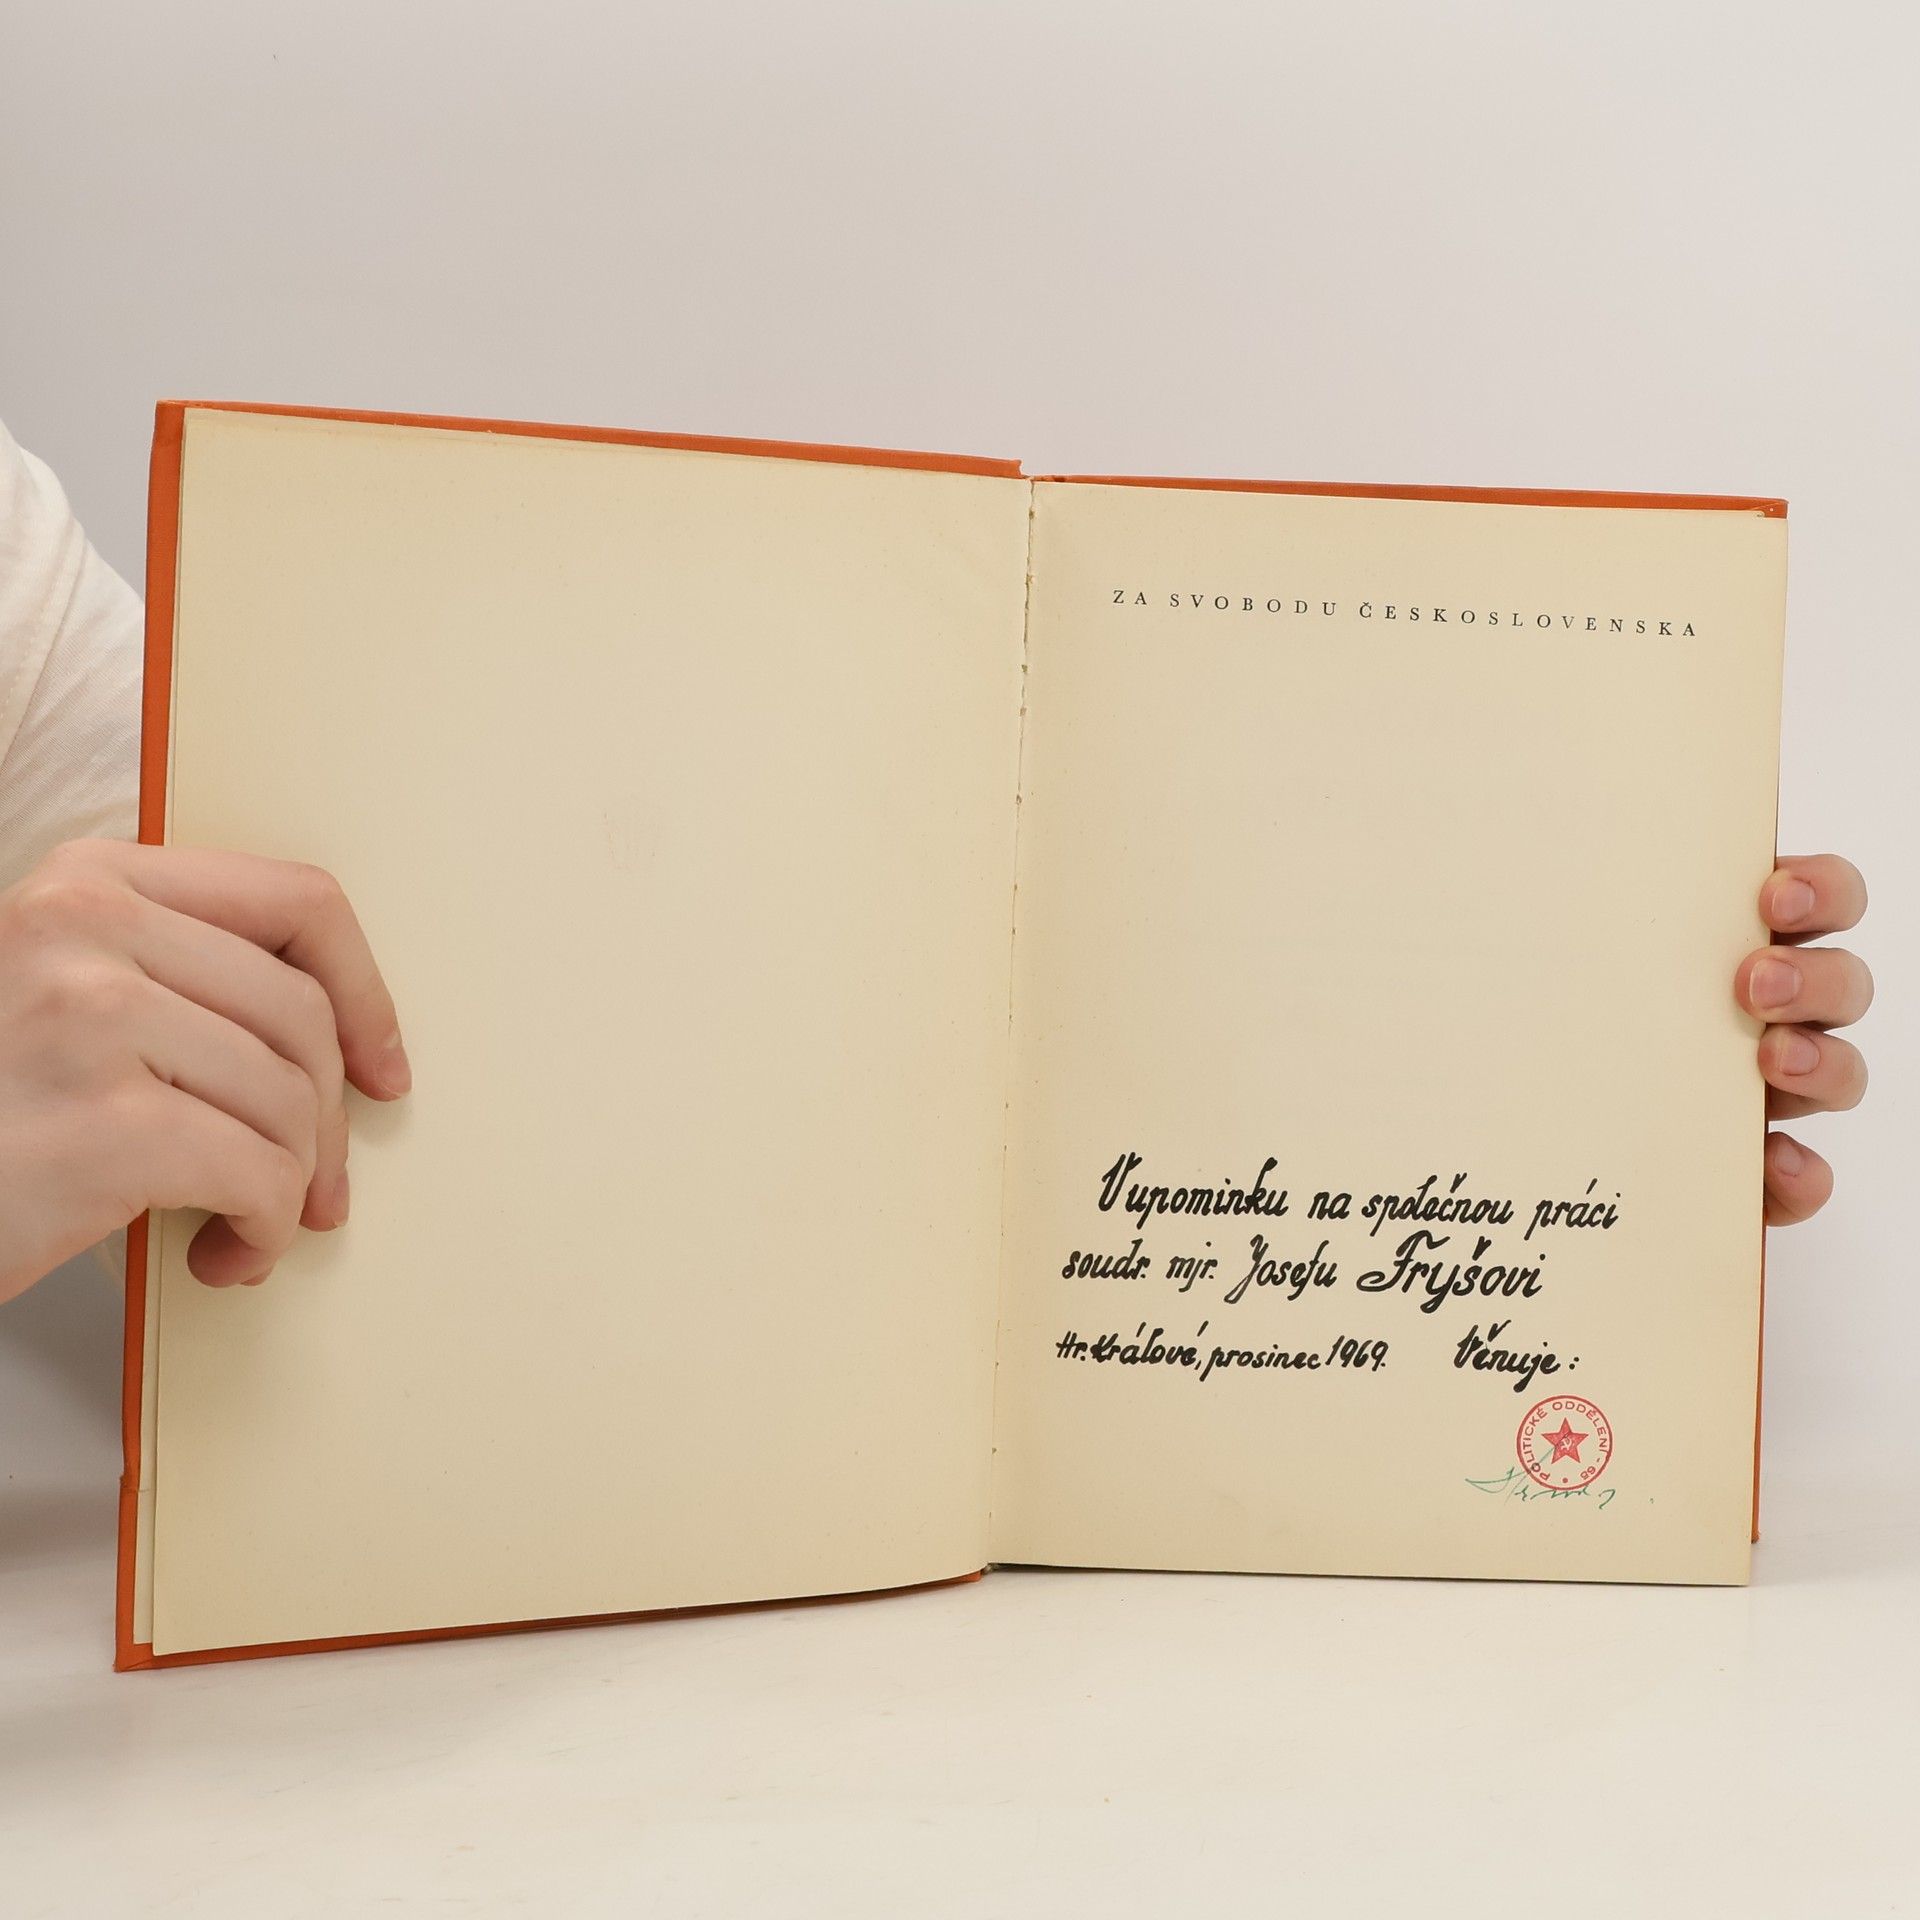 ZA SVOBODU ČESKOSLOVENSKA
Vupomínku na společnou práci
soudr. mjr. Josefu Fryšovi
Hr. Králové, prosinec 1969. Věnuje:
POLITICKÉ ODDĚLENÍ - 65